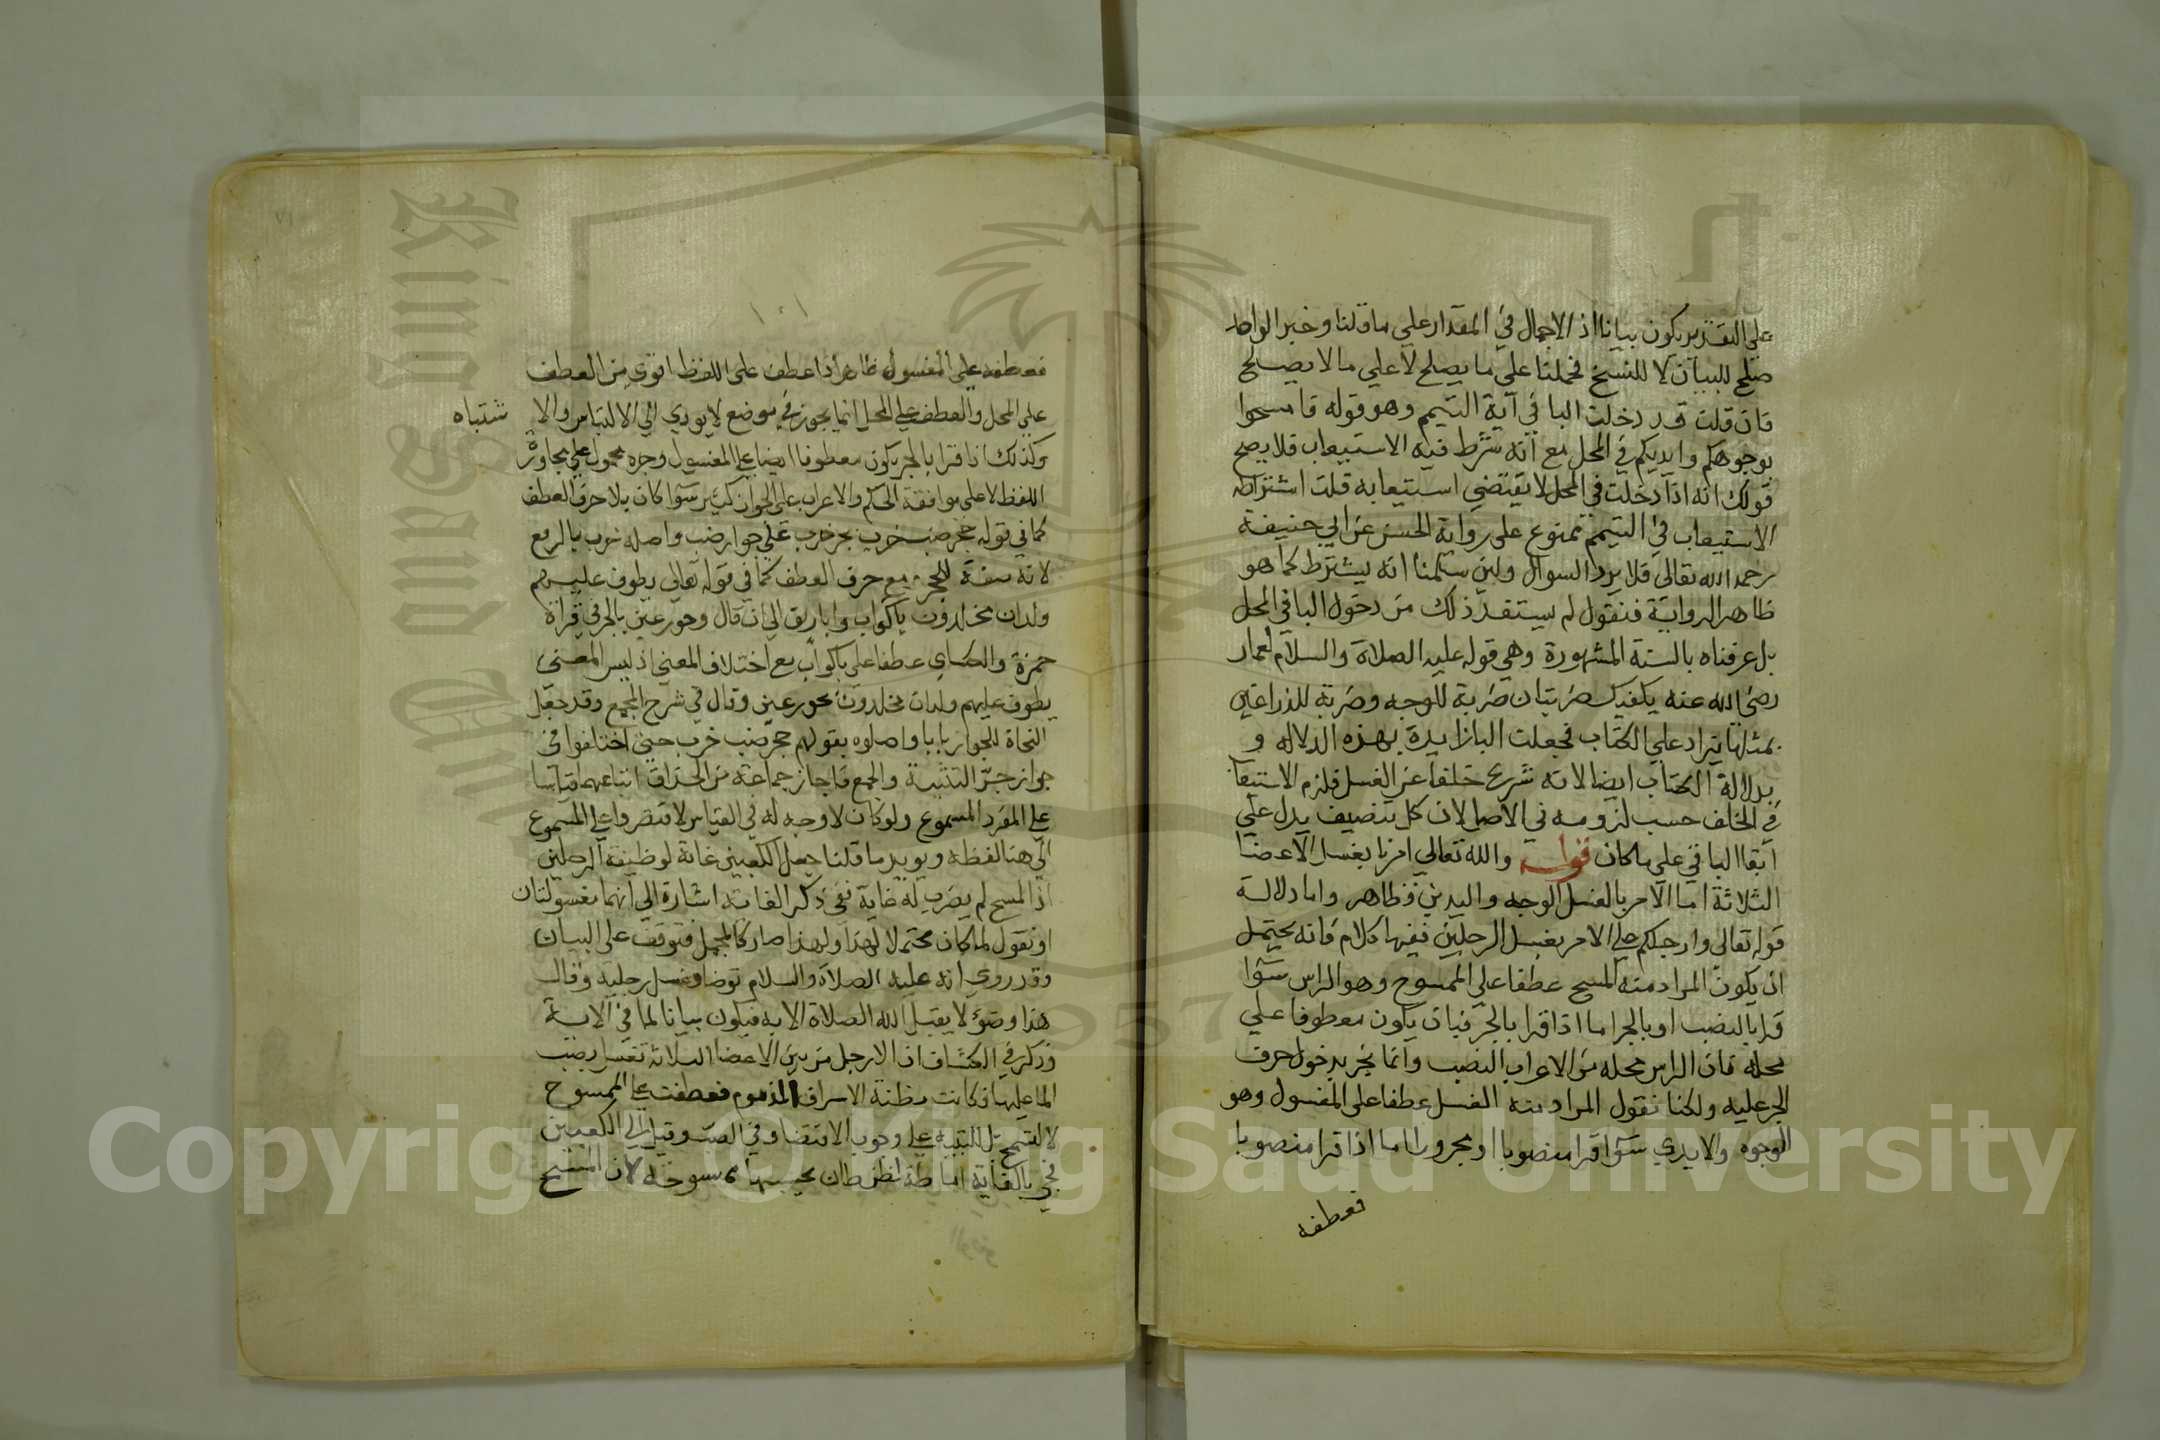 علي التقديرين يكون بيانا اذ الاجمال في المقدار علي ما قلنا وخبر الواحد
صلح للبيان لا للنسخ فحملنا علي ما يصلح لا علي ما لا يصلح
فان قلت قد دخلت البا في آية التيمم وهو قوله فامسحوا
بوجوهكم وايديكم في المحل مع انه شرط فيه الاستيعاب فلا يصح
قولك انه اذا دخلت في المحل لا يقتضي استيعابه قلت اشتراط
الاستيعاب في التيمم ممنوع علي رواية الحسن عن ابي حنيفة
رحمه الله تعالي فلا يرد السوال ولين سلمنا انه يشترط كما هو
ظاهر الرواية فنقول لم يستفد ذلك من دخول البا في المحل
بل عرفناه بالسنة المشهورة وهي قوله عليه الصلاة والسلام لعمار
رضي الله عنه يكفيك ضربتان ضربة للوجه وضربة للذراعين
بمثلها يزاد علي الكتاب فجعلت البا زايدة بهذه الدلاله و
بدلالة الكتاب ايضا لانه شرع خلفا عن الغسل فلزم الاستيعا
في الخلف حسب لزومه في الاصل لان كل تنصيف يدل علي
ابقا الباقي علي ما كان قوله والله تعالي امرنا بغسل الاعضا
الثلاثة اما الامر بالغسل الوجه واليدين فظاهر واما دلالة
قوله تعالي وارجلكم علي الامر بغسل الرجلين ففيها كلام فانه يحتمل
ان يكون المراد منه المسح عطفا علي الممسوح وهو الراس سوا
قرا بالنصب او بالجر اما اذا قرا بالجر فبان يكون معطوفا علي
محله فان الراس محله من الاعراب النصب وانما يجر بدخول حرف
الجر عليه ولكنا نقول المراد منه الغسل عطفا علي المغسول وهو
الوجوه والايدي سوا قرا منصوبا او مجرورا اما اذا قرا منصوبا
فعطفه
فعطفه علي المغسول ظاهر اذا عطف علي اللفظ اقوي من العطف
علي المحل والعطف علي المحل انما يجوز في موضع لا يودي الي الالتباس والا شتباه
وكذلك اذا قرا بالجر يكون معطوفا ايضا علي المغسول وجره محمول علي مجاورة
اللفظ لا علي موافقة الحكم والاعراب علي الجوار كثير سوا كان بلا حرف العطف
كما في قوله جحر ضب خرب بجر خرب علي جوار ضب واصله خرب بالرفع
لانه صفة للجحر مع حرف العطف كما في قوله تعالي يطوف عليهم
ولدان مخلدون باكواب واباريق الي ان قال وحور عين بالجر في قراة
حمزة والكساي عطفا علي باكواب مع اختلاف المعني اذ ليس المعني
يطوف عليهم ولدان مخلدون بحور عين وقال في شرح المجمع وقد جعل
النحاة للجوار بابا واصلوه بقولهم جحر ضب خرب حتي اختلفوا في
جواز جر التثنية والجمع فاجاز جماعة من الحذاق اتباعهما قياسا
علي المفرد المسموع ولو كان لا وجه له في القياس لاقتصروا علي المسموع
الي هنا لفظه ويويد ما قلنا جعل الكعبين غاية لوظيفة الرجلين
اذ المسح لم يضرب له غاية ففي ذكر الغاية اشارة الي انهما مغسولتان
او نقول لما كان محتملا لهذا ولهذا صار كالمجمل فتوقف علي البيان
وقد روي انه عليه الصلاة والسلام توضا وغسل رجليه وقال
هذا وضوء لا يقبل الله الصلاة الا به فيكون بيانا لما في الاية
وذكر في الكشاف ان الارجل من بين الاعضا الثلاثة تغسل بصب
الما عليها فكانت مظنة الاسراف المذموم فعطفت علي الممسوح
لا لتمسح بل للتنبيه علي وجوب الاقتصاد في الصب وقيل الي الكعبين
فجي بالغاية اماطة لظن ظان يحسبها ممسوحة لان المسح
Copyright © King Saud University
King Saud University
1957